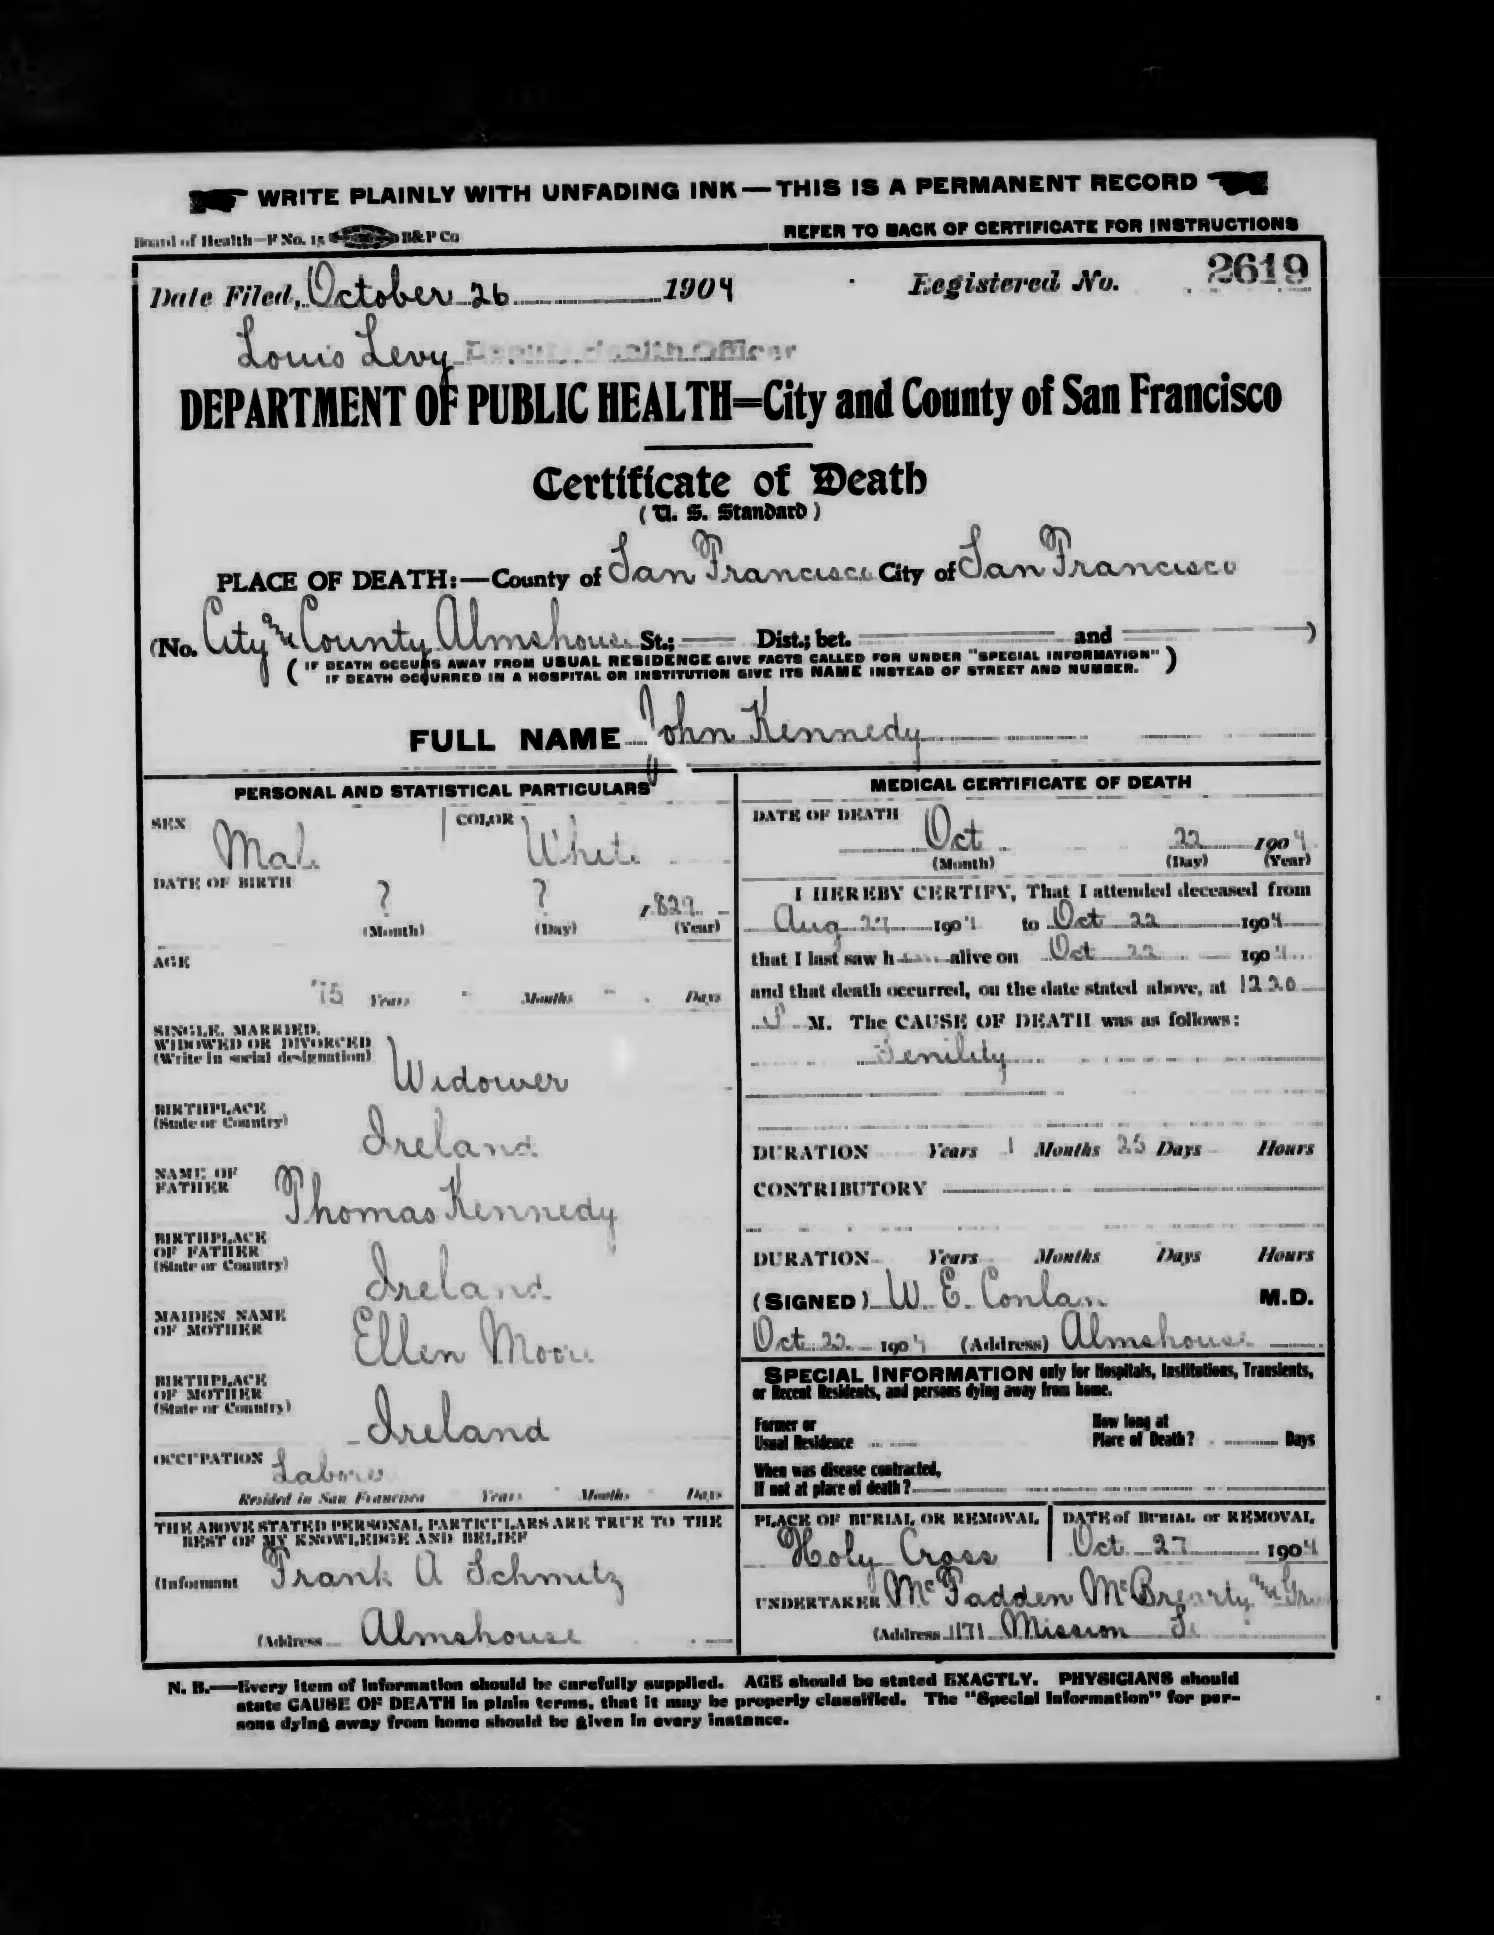 WRITE PLAINLY WITH UNFADING INK — THIS IS A PERMANENT RECORD
Board of Health—F No. 15 B&P Co
REFER TO BACK OF CERTIFICATE FOR INSTRUCTIONS
Date Filed, October 26 1904 Registered No. 2619
Louis Levy Deputy Health Officer
DEPARTMENT OF PUBLIC HEALTH=City and County of San Francisco
Certificate of Death
(U. S. Standard)
PLACE OF DEATH:—County of San Francisco City of San Francisco
(No. City and County Almshouse St.; Dist.; bet. and )
(IF DEATH OCCURS AWAY FROM USUAL RESIDENCE GIVE FACTS CALLED FOR UNDER "SPECIAL INFORMATION"
IF DEATH OCCURRED IN A HOSPITAL OR INSTITUTION GIVE ITS NAME INSTEAD OF STREET AND NUMBER.)
FULL NAME John Kennedy
PERSONAL AND STATISTICAL PARTICULARS
SEX Male COLOR White
DATE OF BIRTH ? ? 1829
(Month) (Day) (Year)
AGE
75 Years Months Days
SINGLE, MARRIED,
WIDOWED OR DIVORCED
(Write in social designation)
Widower
BIRTHPLACE
(State or Country)
Ireland
NAME OF
FATHER
Thomas Kennedy
BIRTHPLACE
OF FATHER
(State or Country)
Ireland
MAIDEN NAME
OF MOTHER
Ellen Moore
BIRTHPLACE
OF MOTHER
(State or Country)
Ireland
OCCUPATION Laborer
Resided in San Francisco Years Months Days
THE ABOVE STATED PERSONAL PARTICULARS ARE TRUE TO THE
BEST OF MY KNOWLEDGE AND BELIEF
(Informant Frank A Schmitz
(Address Almshouse
MEDICAL CERTIFICATE OF DEATH
DATE OF DEATH
Oct 22 1904
(Month) (Day) (Year)
I HEREBY CERTIFY, That I attended deceased from
Aug 27 1904 to Oct 22 1904
that I last saw h alive on Oct 22 1904
and that death occurred, on the date stated above, at 12 20
P M. The CAUSE OF DEATH was as follows:
Senility
DURATION Years 1 Months 25 Days Hours
CONTRIBUTORY
DURATION Years Months Days Hours
(SIGNED) W. E. Conlan M.D.
Oct 22 1904 (Address) Almshouse
SPECIAL INFORMATION only for Hospitals, Institutions, Transients,
or Recent Residents, and persons dying away from home.
Former or
Usual Residence
How long at
Place of Death? Days
When was disease contracted,
If not at place of death?
PLACE OF BURIAL OR REMOVAL
Holy Cross
DATE of BURIAL or REMOVAL
Oct 27 1904
UNDERTAKER McFadden McBrearty and
(Address 1171 Mission St
N. B.—Every item of information should be carefully supplied. AGE should be stated EXACTLY. PHYSICIANS should
state CAUSE OF DEATH in plain terms, that it may be properly classified. The "Special Information" for per-
sons dying away from home should be given in every instance.